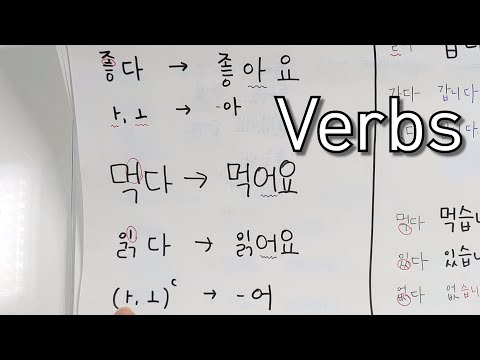 좋다 → 좋아요
ㅏ, ㅗ → -아
Verbs
먹다 → 먹어요
읽다 → 읽어요
(ㅏ, ㅗ)ᶜ → -어
갑니다
먹다 먹습니
있다 있습니
없다 없습니